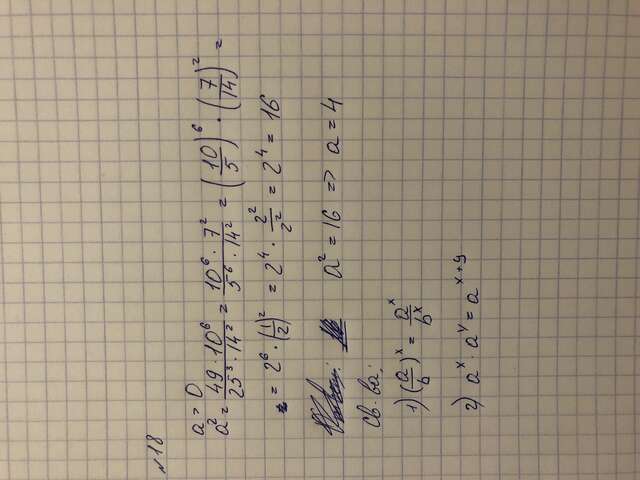 №18
a > 0
a² = 49 · 10⁶ / 25³ · 14² = 10⁶ · 7² / 5⁶ · 14² = (10/5)⁶ · (7/14)² =
= 2⁶ · (1/2)² = 2⁴ · 2²/2² = 2⁴ = 16
a² = 16 => a = 4
Св-ва:
1) (a/b)ˣ = aˣ/bˣ
2) aˣ · aʸ = aˣ⁺ʸ